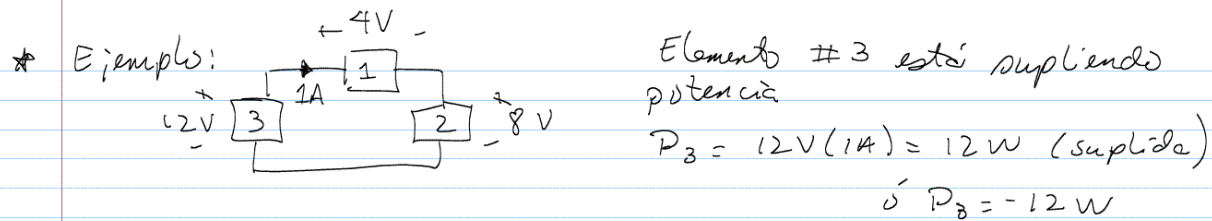 * Ejemplo:
+ 4V -
1
1A
+ 12V -
3
2
+ 8 V -
Elemento #3 está supliendo
potencia
P3 = 12V(1A) = 12W (suplida)
ó P3 = -12W